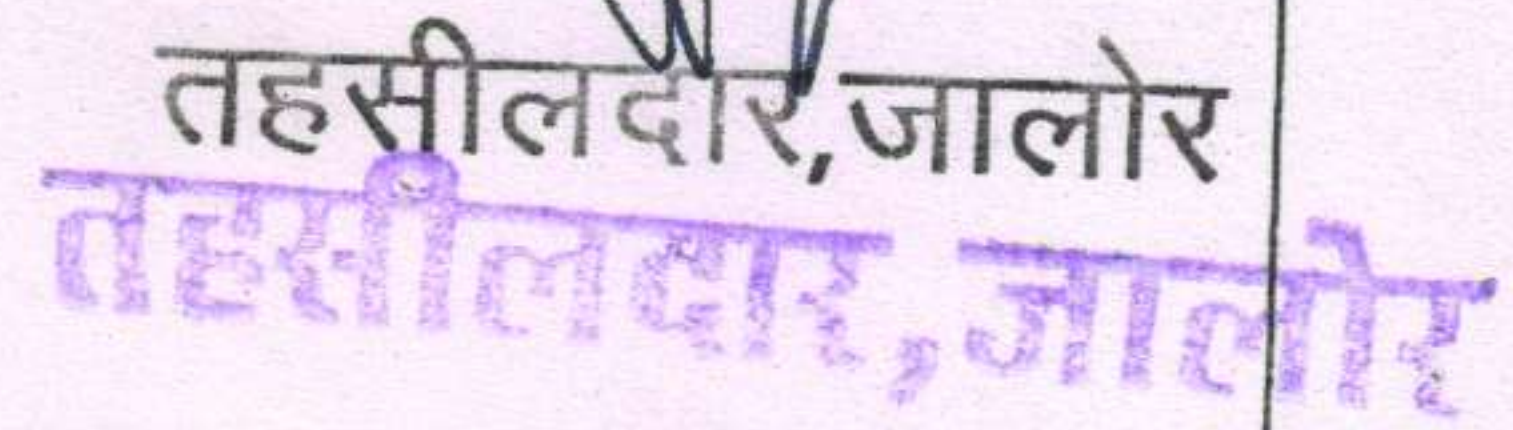 तहसीलदार,जालोर
तहसीलदार,जालोर